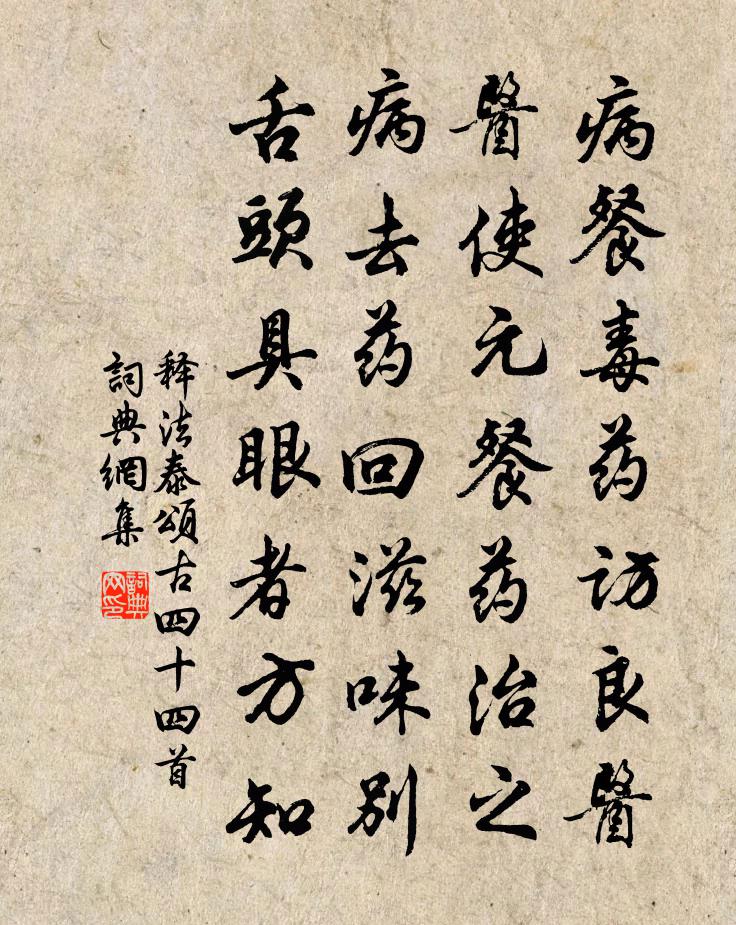 病餐毒药访良醫
醫使元餐药治之
病去药回滋味别
舌頭具眼者方知
释法泰頌古四十四首
詞典網集
詞典網印